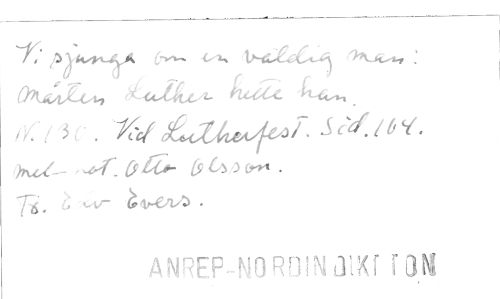 Vi sjunga om en väldig man:
Mårten Luther hette han.
N. 130. Vid Lutherfest. Sid. 104.
mel-not. Otto Olsson.
Tx. Edv Evers.
ANREP-NORDIN DIKT TON